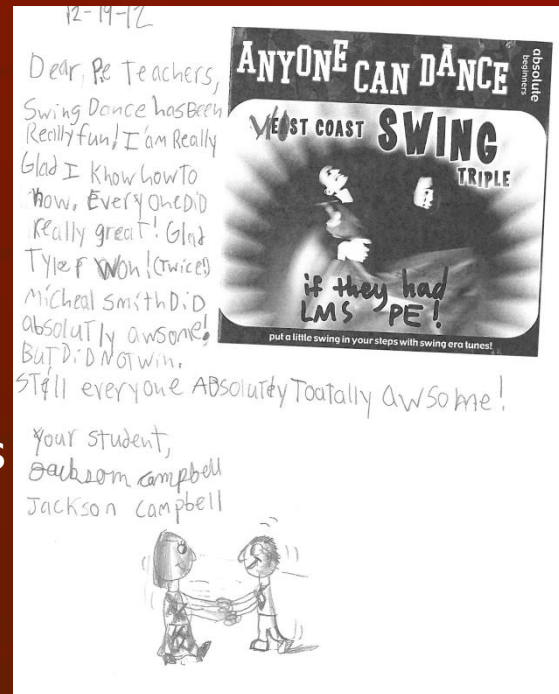 12-19-12
Dear, Pe Teachers,
Swing Dance has Been
Really fun! I'am Really
Glad I Know how To
now. Every one DiD
really great! Glad
Tyler Won! (Twice!)
Micheal Smith DiD
absolutly awsome!
BuT DiD NOT win.
Still everyone ABsolutely Toatally awsome!
your student,
Jackson campbell
Jackson campbell
ANYONE CAN DANCE
absolute
beginners
WEST COAST SWING
TRIPLE
if they had
LMS PE!
put a little swing in your steps with swing era tunes!
s